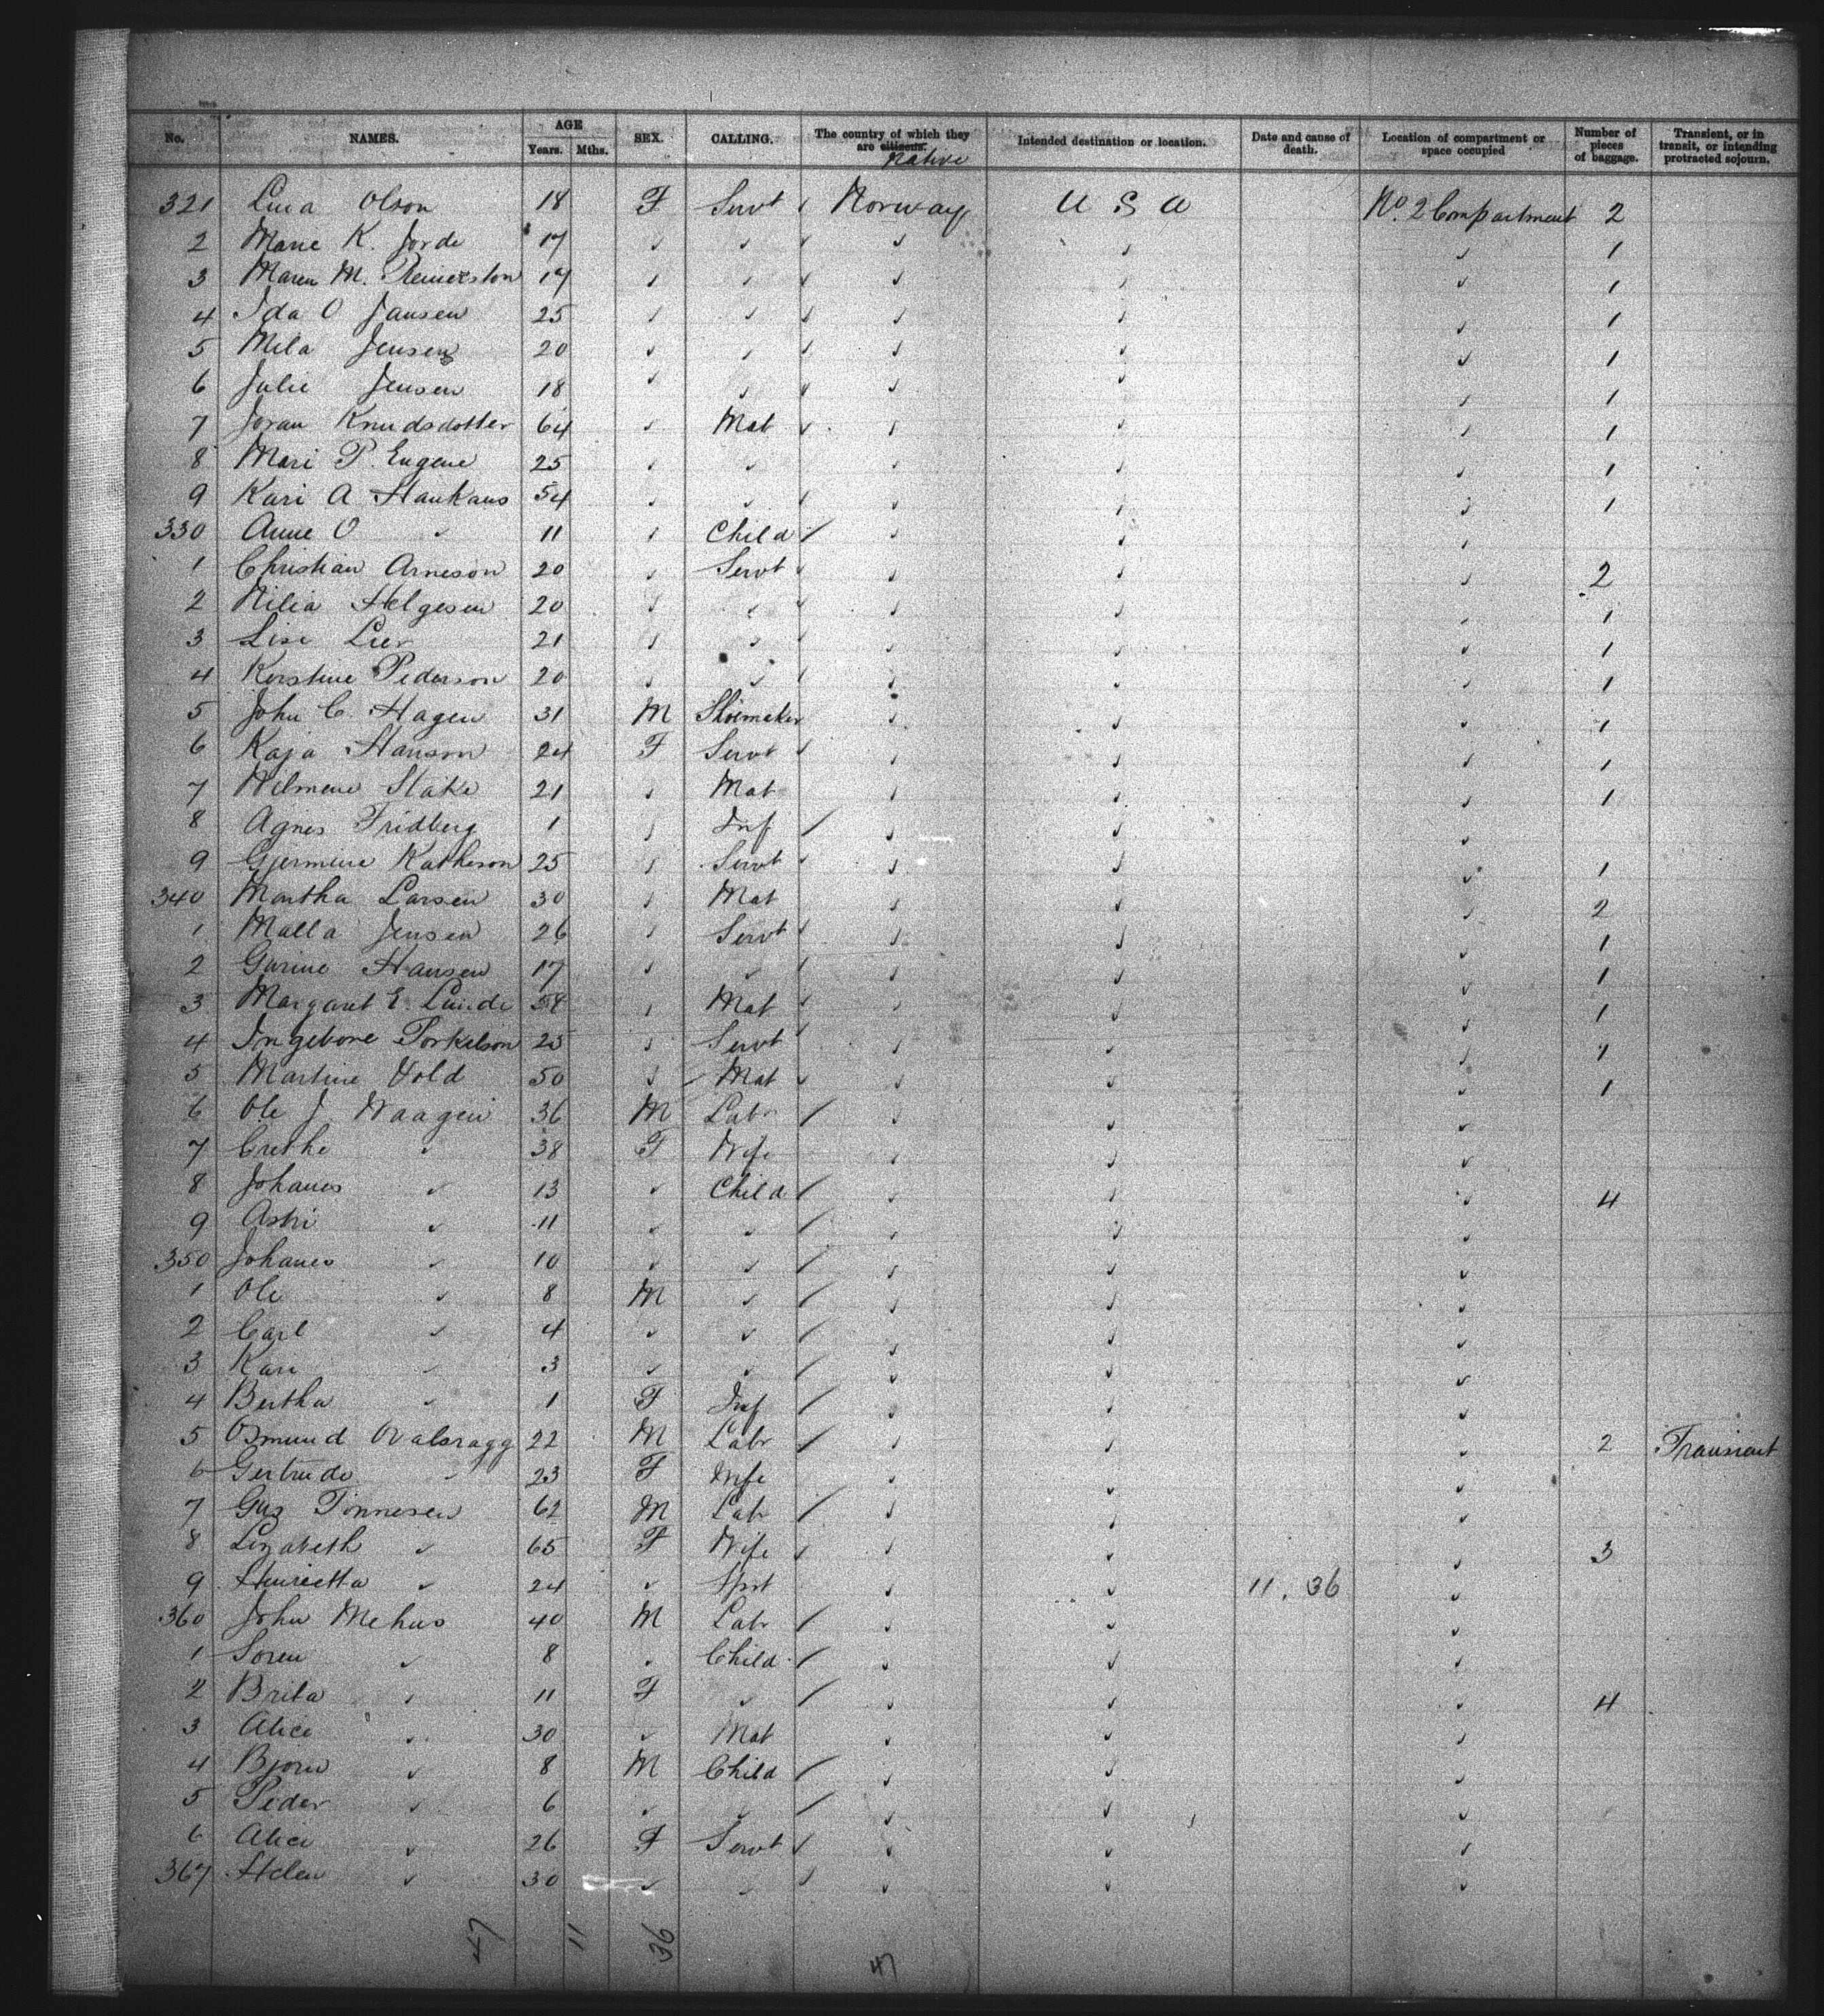 No. NAMES. AGE Years. Mths. SEX. CALLING. The country of which they are citizens. native Intended destination or location. Date and cause of death. Location of compartment or space occupied Number of pieces of baggage. Transient, or in transit, or intending protracted sojourn.
321 Olson 18 F Servt Norway U S A No. 2 Compartment 2
2 Marie K. Jorde 17 ✓ ✓ ✓ ✓ ✓ 1
3 Maren M. 19 ✓ ✓ ✓ ✓ ✓ 1
4 Ida O Jansen 25 ✓ ✓ ✓ ✓ ✓ 1
5 Mila Jensen 20 ✓ ✓ ✓ ✓ ✓ 1
6 Julie Jensen 18 ✓ ✓ ✓ ✓ ✓ 1
7 Joran Knudsdotter 64 ✓ Mat ✓ ✓ ✓ 1
8 Mari P. Eugene 25 ✓ ✓ ✓ ✓ ✓ 1
9 Kari A Haukaus 54 ✓ ✓ ✓ ✓ ✓ 1
330 Anne O ✓ 11 ✓ Child ✓ ✓ ✓
1 Christian Arneson 20 ✓ Servt ✓ ✓ ✓ 2
2 Nilia Helgesen 20 ✓ ✓ ✓ ✓ ✓ 1
3 Lise Lier 21 ✓ ✓ ✓ ✓ ✓ 1
4 Kerstine Pederson 20 ✓ ✓ ✓ ✓ ✓ 1
5 John C. Hagen 31 M Shoemaker ✓ ✓ ✓ 1
6 Kaja Hanson 24 F Servt ✓ ✓ ✓ 1
7 Wilmene 21 ✓ Mat ✓ ✓ ✓ 1
8 Agnes Fridberg 1 ✓ Inf ✓ ✓ ✓
9 Gjermine Katheson 25 ✓ Servt ✓ ✓ ✓ 1
340 Martha Larsen 30 ✓ Mat ✓ ✓ ✓ 2
1 Malla Jensen 26 ✓ Servt ✓ ✓ ✓ 1
2 Gurine Hansen 17 ✓ ✓ ✓ ✓ ✓ 1
3 Margaret E. Lunde ✓ Mat ✓ ✓ ✓ 1
4 Ingebore Torkelson 25 ✓ Servt ✓ ✓ ✓ 1
5 Martine Vold 50 ✓ Mat ✓ ✓ ✓ 1
6 Ole J Waagen 36 M Labr ✓ ✓ ✓
7 Crethe ✓ 38 F Wife ✓ ✓ ✓
8 Johanes ✓ 13 ✓ Child ✓ ✓ ✓ 4
9 Astri ✓ 11 ✓ ✓ ✓ ✓ ✓
350 Johanes ✓ 10 ✓ ✓ ✓ ✓ ✓
1 Ole ✓ 8 M ✓ ✓ ✓ ✓
2 Carl ✓ 4 ✓ ✓ ✓ ✓ ✓
3 Kari ✓ 3 ✓ ✓ ✓ ✓ ✓
4 Bertha ✓ 1 F Inf ✓ ✓ ✓
5 Osmund 22 M Labr ✓ ✓ ✓ 2 Transient
6 Gertrude ✓ 23 F Wife ✓ ✓ ✓
7 Gus Tonnesen 62 M Labr ✓ ✓ ✓
8 Lizabeth ✓ 65 F Wife ✓ ✓ ✓ 3
9 Henrietta ✓ 24 ✓ Spst ✓ ✓ 11. 36 ✓
360 John Mehus 40 M Labr ✓ ✓ ✓
1 Soren ✓ 8 ✓ Child ✓ ✓ ✓
2 Brita ✓ 11 F ✓ ✓ ✓ ✓ 4
3 Alice ✓ 30 ✓ Mat ✓ ✓ ✓
4 Bjorn ✓ 8 M Child ✓ ✓ ✓
5 Peder ✓ 6 ✓ ✓ ✓ ✓ ✓
6 Alice ✓ 26 F Servt ✓ ✓ ✓
367 Helen ✓ 30 ✓ ✓ ✓ ✓ ✓
47 11 36 47